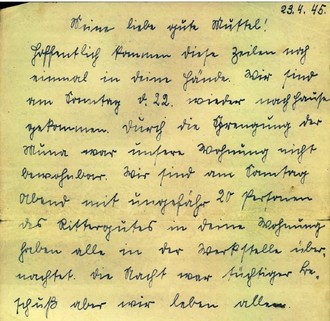 29.4.45.
Meine liebe gute Muttel!
Hoffentlich kommen diese Zeilen noch
einmal in deine Hände. Wir sind
am Sonntag d. 22. wieder nach Hause
gekommen. Durch die Sprengung der
Muna war unsere Wohnung nicht
bewohnbar. Wir sind am Sonntag
Abend mit ungefähr 20 Personen
des Rittergutes in deine Wohnung
haben alle in der Werkstelle über-
nachtet. Die Nacht war tüchtiger Be-
schuß aber wir leben alle.